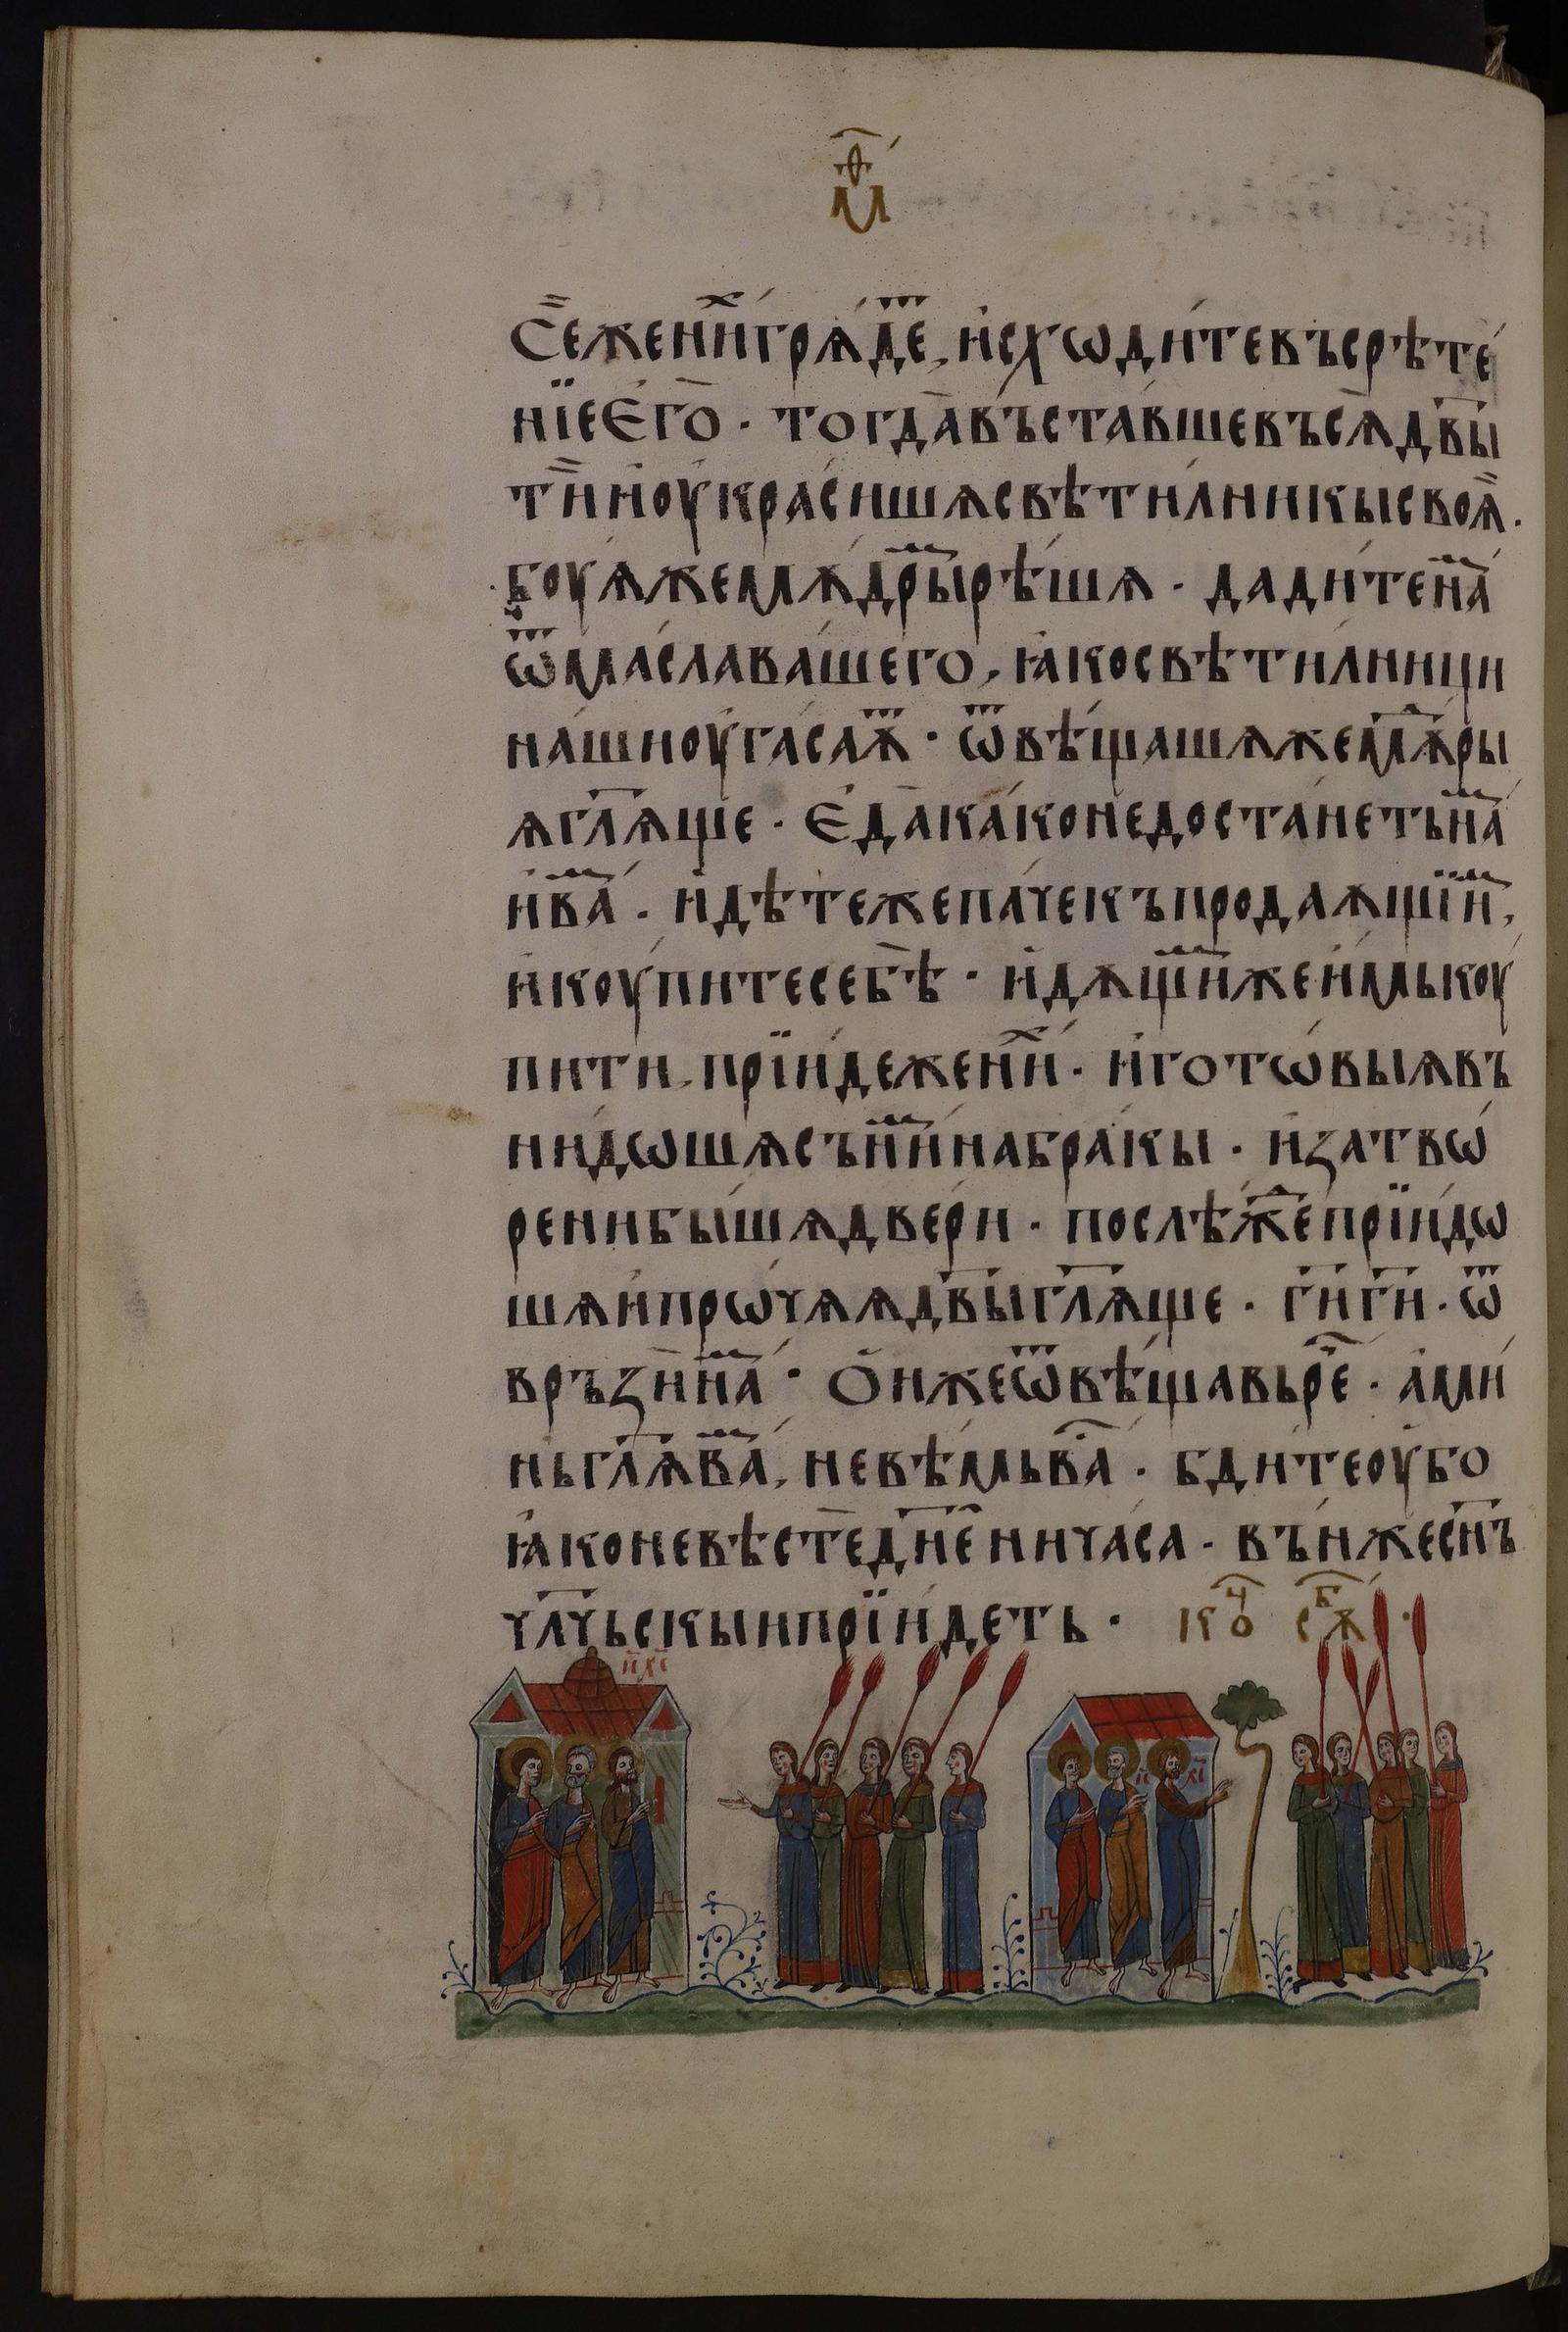 м҃ѳ
С̿е женⷯи́ гря́дⷮе, и҆сходи́те въ срѣте́
нїе є҆го̀ · тогда̀ въста́вше въсѧ̀ дв҃ы
ты̿ и҆ оу҆краси́шѧ свѣти́лникы своѧ̀ ·
боуѧ́ же мѫ́дрⷨы рѣ́шѧ · дади́те нⷭа́
ѿ ма́сла ва́шего, ꙗ҆́ко свѣти́лници
на́ши оу҆гаса́ѫⷮ · ѿвѣ́щашѧ же мѫⷣры
ѧ гл҃ѧще · Є҆да̀ ка́ко не доста́неть нⷨа́
и҆ вⷨа́ · и҆дѣ́те же па́че къ продаѫ́щїиⷨ,
и҆ коупи́те себѣ̀ · и҆дѫ́щиⷨ же и҆́мь коу
пити, прїи́де женⷯи́ · и҆ гото́выѧ въ
ни́дѡшѧ съ ниⷨ на бра́кы · и҆ затвѡ́
рени бы́шѧ две́ри · послѣ́жⷣе прїи́дѡ
шѧ и҆ прѡ́чѧѧ дв҃ы гл҃ѧще · г҃и г҃и · ѿ
връзѝ нⷨа́ · Ѻ҆́н же ѿвѣ́щавь рⷱе · а҆ми́
нь гл҃ѧ вⷨа́, не вѣ́мь вⷭа́ · бди́те оу҆́бо
ꙗ҆́ко не вѣстѐ дн҃е ни ча́са · вънже сн҃ъ
чл҃чьскыи прїи́деть · коⷱ сѫⷠ ·
і҃с х҃с
і҃с х҃с